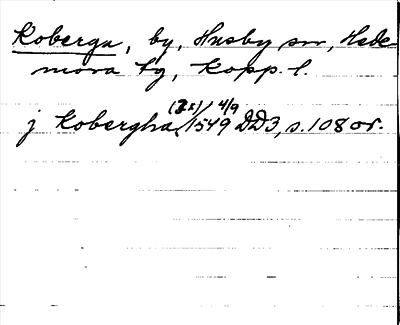 Koberga, by, Husby sn, Hede-
mora tg, Kopp. l.
(2x) 4/9
j Kobergha 1549 DD3, s. 108 or.